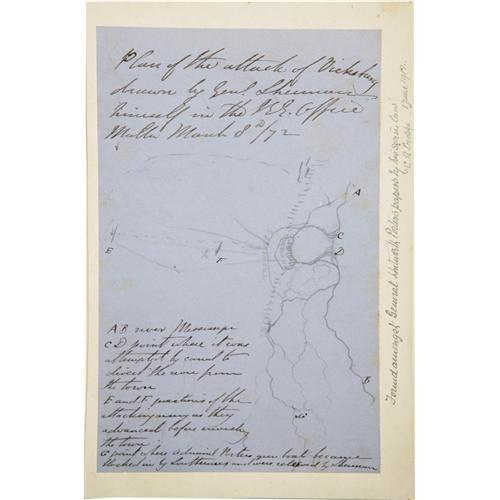 Plan of the attack of Vicksburg
drawn by Genl Sherman
himself in the Office
Malta March 8th/72
A
C
D
E
F
B
G
A B river Missisipi
C D point where it was
attempted by canal to
divert the river from
the town
E and F positions of the
attacking army as they
advanced before
the town
G point where Admiral Porters gun boat became
blocked in by Southerners and were relieved by Sherman
Found amongst General Whitworth Porter's papers by his son in law
June